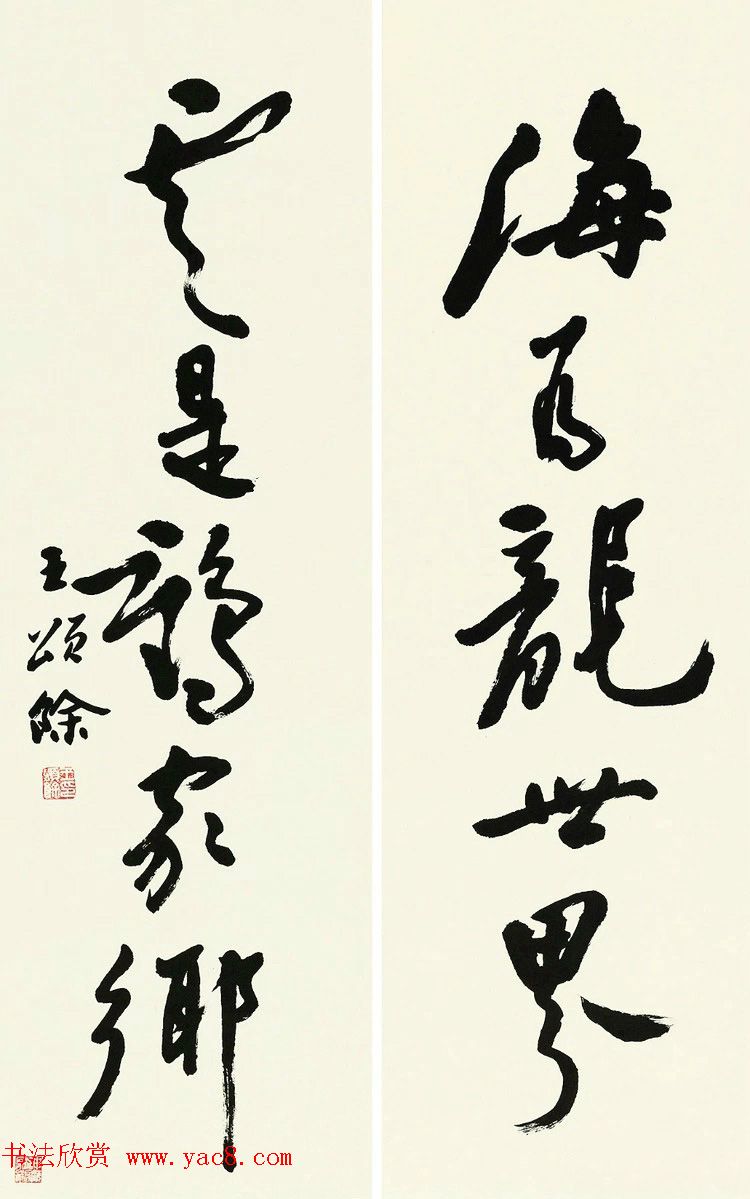 海為龍世界
雲是鶴家鄉
王頌餘
书法欣赏 www.yac8.com